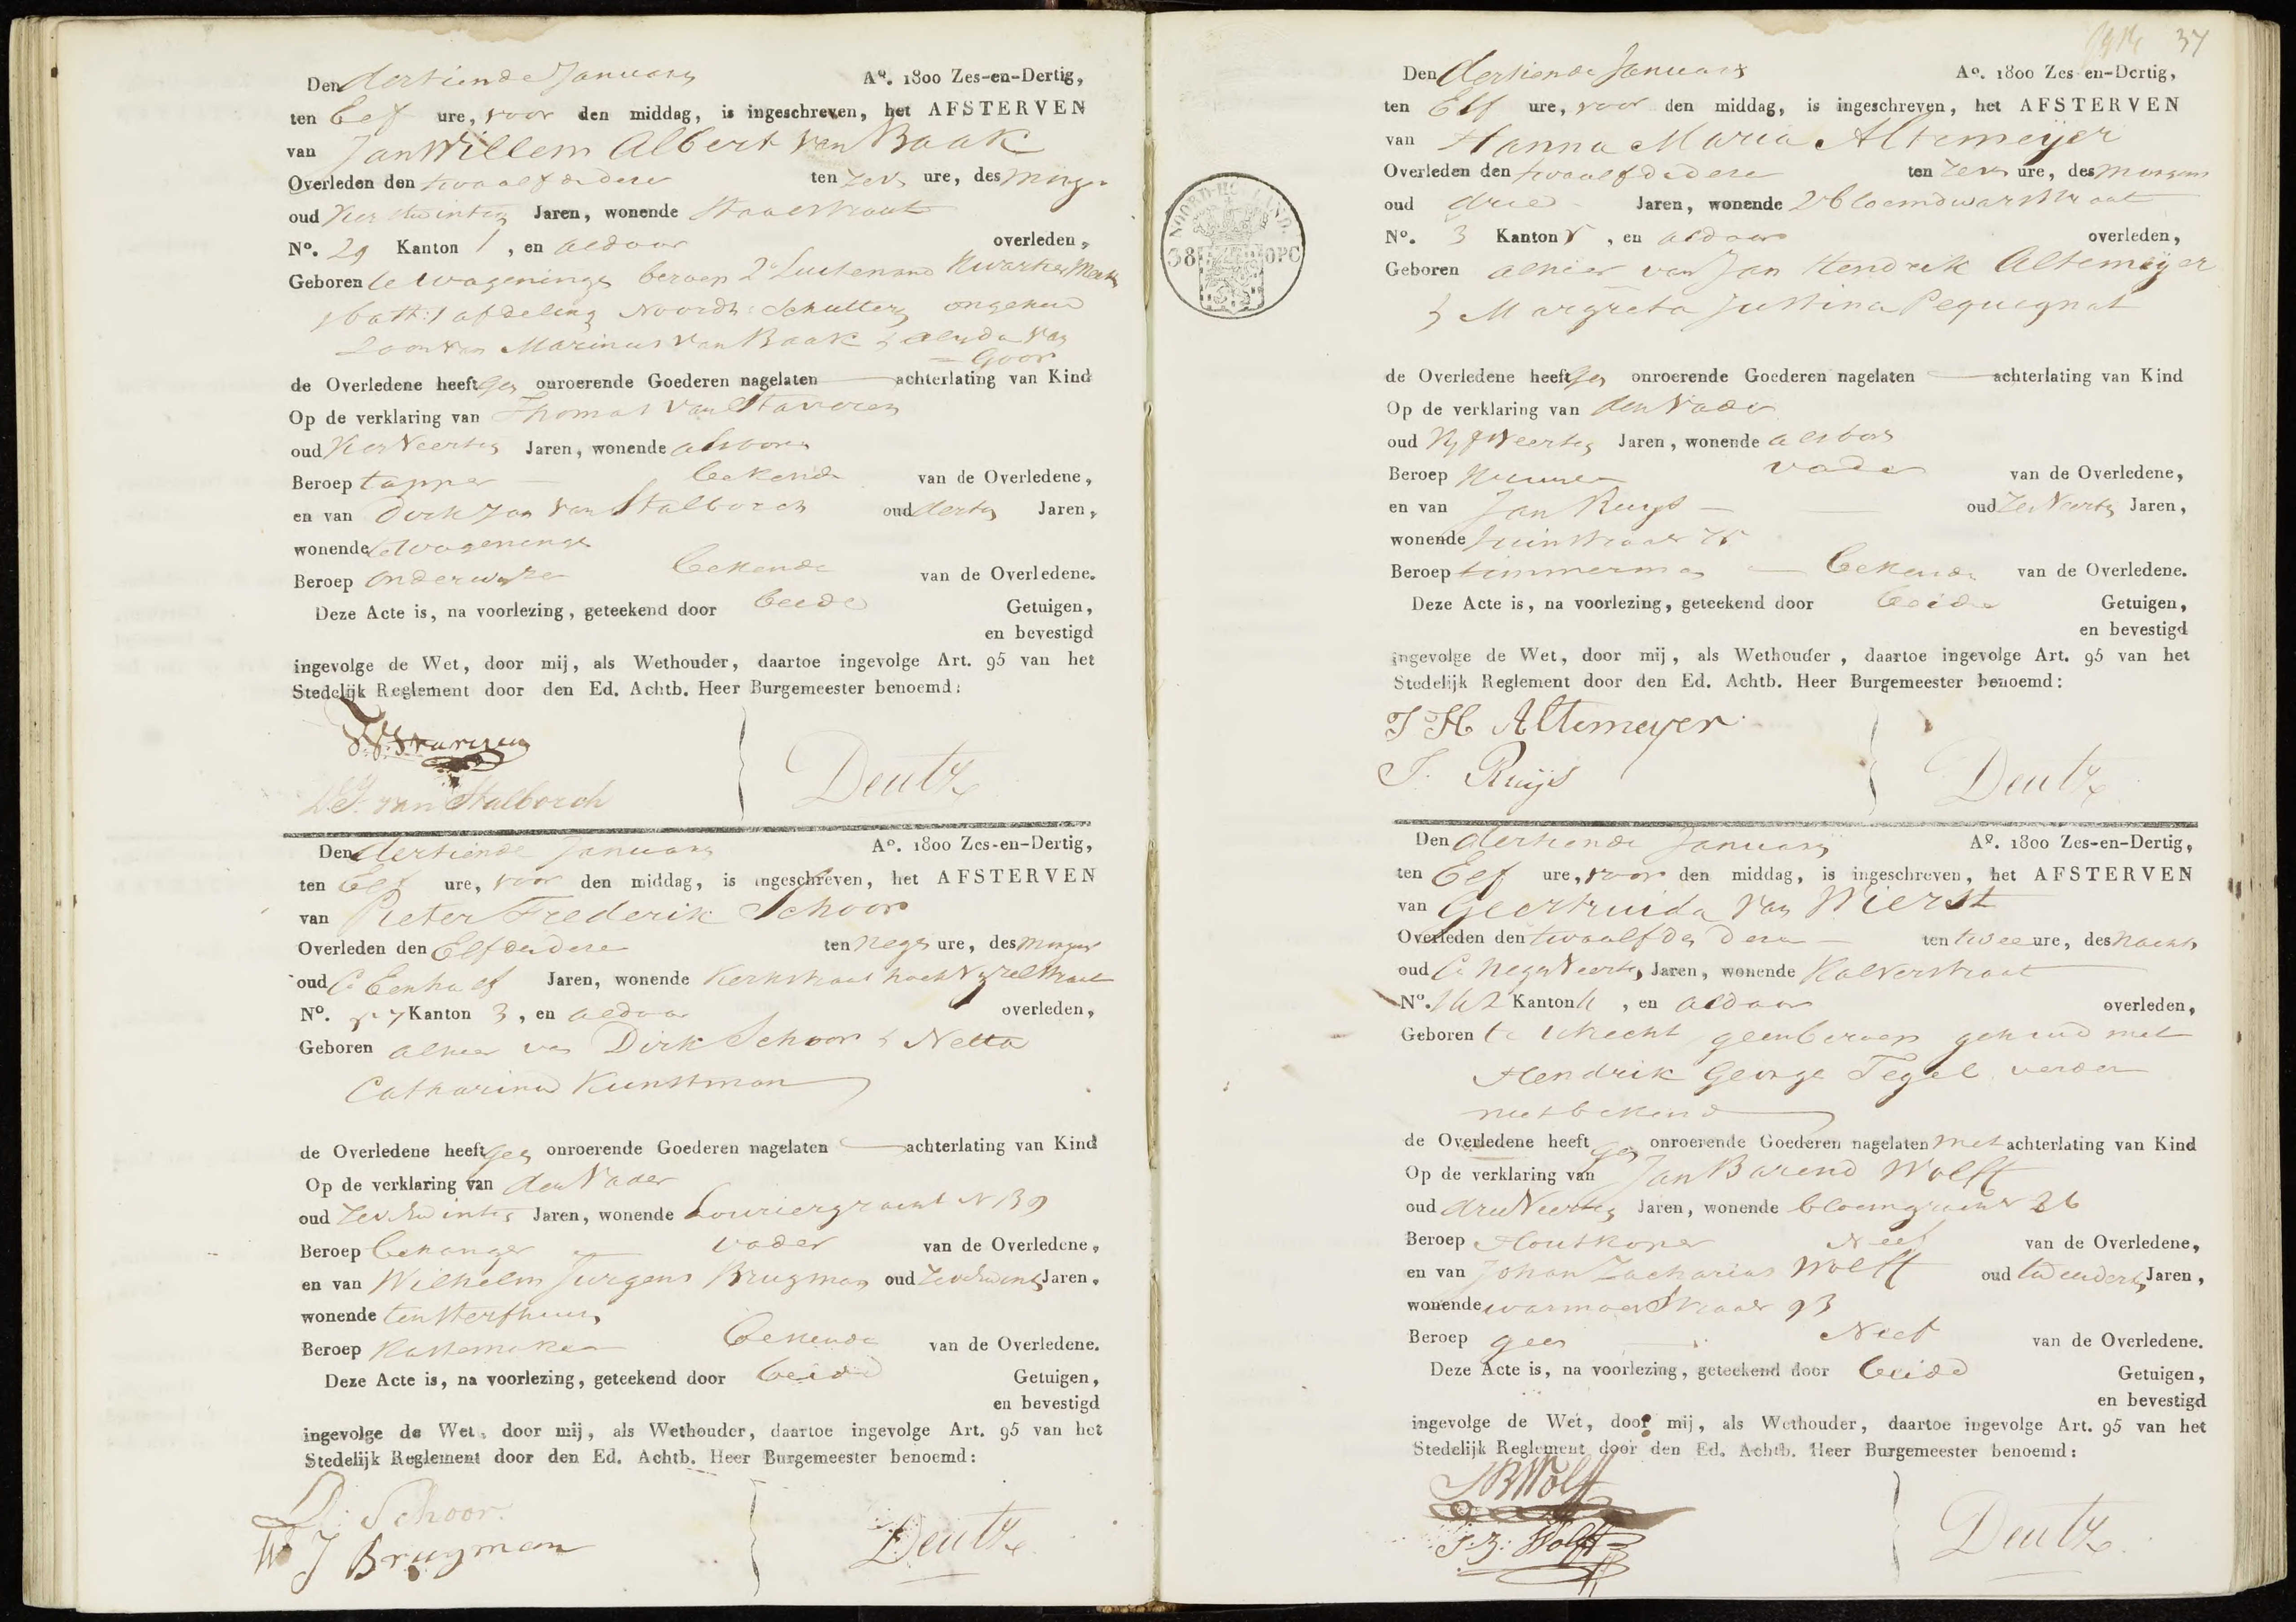 Den dertiende January A°. 1800 Zes-en-Dertig,
ten Elf ure, voor den middag, is ingeschreven, het AFSTERVEN
van Jan Willem Albert van Baak
Overleden den twaalf dezer ten zeven ure, des morgens
oud vier twintig Jaren, wonende Staalstraat
N°. 29 Kanton 1, en aldaar overleden,
Geboren te Wageninge beroep 2e Luitenand Kwartier Mees
1 batt: 1 afdeling Noordh: Schuttery ongehuwd
Zoon van Marinus van Baak & Alyda van
Goor
de Overledene heeft geen onroerende Goederen nagelaten achterlating van Kind
Op de verklaring van Thomas van Staveren
oud vier veertig Jaren, wonende alsboven
Beroep tapper bekende van de Overledene,
en van Dirk Jan van Stalborch oud dertig Jaren,
wonende te Wageninge
Beroep onderwyzer bekende van de Overledene.
Deze Acte is, na voorlezing, geteekend door beide Getuigen,
en bevestigd
ingevolge de Wet, door mij, als Wethouder, daartoe ingevolge Art. 95 van het
Stedelijk Reglement door den Ed. Achtb. Heer Burgemeester benoemd:
D. J. van Stalborch
Deutz
Den dertiende January A°. 1800 Zes-en-Dertig,
ten Elf ure, voor den middag, is ingeschreven, het AFSTERVEN
van Pieter Frederik Schoor
Overleden den Elf dezer ten negen ure, des morgens
oud Een half Jaren, wonende Kerkstraat hoek Vyzelstraat
N°. Kanton 3, en aldaar overleden,
Geboren alhier van Dirk Schoor & Netta
Catharina Kunstman
de Overledene heeft geen onroerende Goederen nagelaten achterlating van Kind
Op de verklaring van den Vader
oud zeven twintig Jaren, wonende Louriergracht N 139
Beroep behanger vader van de Overledene,
en van Wilhelm Jurgens Brugman oud zeven twintig Jaren,
wonende ten sterfhuis
Beroep Kastemaker bekende van de Overledene.
Deze Acte is, na voorlezing, geteekend door beide Getuigen,
en bevestigd
ingevolge de Wet, door mij, als Wethouder, daartoe ingevolge Art. 95 van het
Stedelijk Reglement door den Ed. Achtb. Heer Burgemeester benoemd:
D: Schoor.
W J Brugman
Deutz
37
NOORD-HOLLAND.
38 OPC
Den dertiende January A°. 1800 Zes-en-Dertig,
ten Elf ure, voor den middag, is ingeschreven, het AFSTERVEN
van Hanna Maria Altemeijer
Overleden den twaalf dezer ten zeven ure, des morgens
oud drie Jaren, wonende 2 bloemdwarsstraat
N°. 3 Kanton, en aldaar overleden,
Geboren alhier van Jan Hendrik Altemeijer
& Margreta Justina Pequegnat
de Overledene heeft geen onroerende Goederen nagelaten achterlating van Kind
Op de verklaring van den Vader
oud vyf veertig Jaren, wonende alsboven
Beroep vader van de Overledene,
en van Jan Ruys oud Jaren,
wonende Tuinstraat 75
Beroep timmerman bekende van de Overledene.
Deze Acte is, na voorlezing, geteekend door beide Getuigen,
en bevestigd
ingevolge de Wet, door mij, als Wethouder, daartoe ingevolge Art. 95 van het
Stedelijk Reglement door den Ed. Achtb. Heer Burgemeester benoemd:
J H Altemeyer
J. Ruijs
Deutz
Den dertiende January A°. 1800 Zes-en-Dertig,
ten Elf ure, voor den middag, is ingeschreven, het AFSTERVEN
van Geertruida van Wierst
Overleden den twaalfden dezer ten twee ure, des nachts
oud negen veertig Jaren, wonende Kalverstraat
N°. 162 Kanton, en aldaar overleden,
Geboren te Utrecht geen beroep gehuwd met
Hendrik George Tegel verder
niet bekend
de Overledene heeft geen onroerende Goederen nagelaten met achterlating van Kind
Op de verklaring van Jan Barend Wolff
oud drie veertig Jaren, wonende bloemgracht 26
Beroep Houtkoper Neef van de Overledene,
en van Johan Zacharias Wolff oud twee dertig Jaren,
wonende warmoesstraat 93
Beroep geen Neef van de Overledene.
Deze Acte is, na voorlezing, geteekend door beide Getuigen,
en bevestigd
ingevolge de Wet, door mij, als Wethouder, daartoe ingevolge Art. 95 van het
Stedelijk Reglement door den Ed. Achtb. Heer Burgemeester benoemd:
JB Wolff
J. Z: Wolff
Deutz